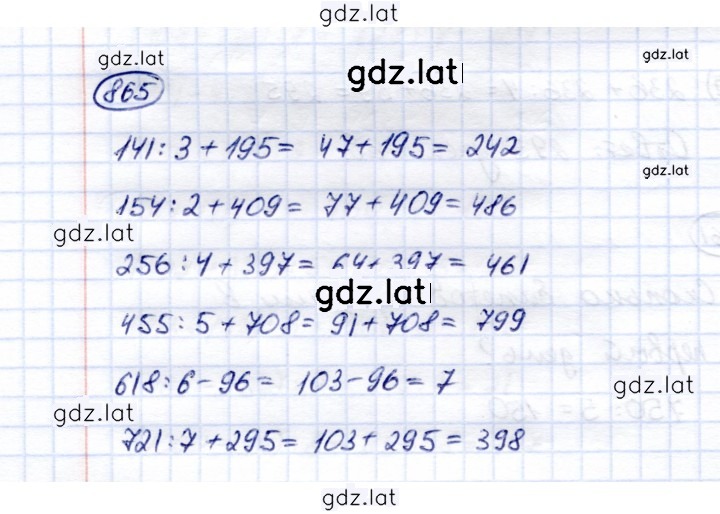 gdz.lat
gdz.lat gdz.lat gdz.lat
865
141 : 3 + 195 = 47 + 195 = 242
gdz.lat
154 : 2 + 409 = 77 + 409 = 486
gdz.lat
256 : 4 + 397 = 64 + 397 = 461
gdz.lat
455 : 5 + 708 = 91 + 708 = 799
618 : 6 - 96 = 103 - 96 = 7
gdz.lat gdz.lat
721 : 7 + 295 = 103 + 295 = 398
gdz.lat